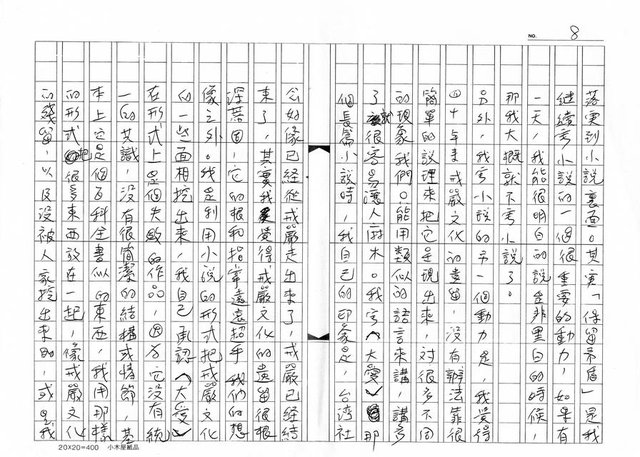 NO. 8
落實到小說裏面。其實「保留矛盾」是我
繼續寫小說的一個很重要的動力，如果有
一天，我能很明白的說出非黑白的時候，
那我大概就不寫小說了。
另外，我寫小說的另一個動力是，我覺得
四十年來戒嚴文化的遺留，沒有辦法靠很
簡單的說理來把它呈現出來，對很多不同
的現象，我們只能用類似的語言來講，講多
了就很容易讓人麻木。我寫《大愛》那
個長篇小說時，我自己的印象是，台灣社
會好像已經從戒嚴走出來了，戒嚴已經結
束了，其實我覺得戒嚴文化的遺留很根
深蒂固，它的根和指常遠遠超乎我們的想
像之外。我是利用小說的形式把戒嚴文化
的一些面相挖出來，我自己承認《大愛》
在形式上是個失敗的作品，因為它沒有統
一的共識，沒有很簡潔的結構或情節，基
本上它是個百科全書似的東西，我用那樣
的形式把很多東西放在一起，像戒嚴文化
的殘留，以及沒被人家挖出來的，或是我
20X20=400 小木屋紙品